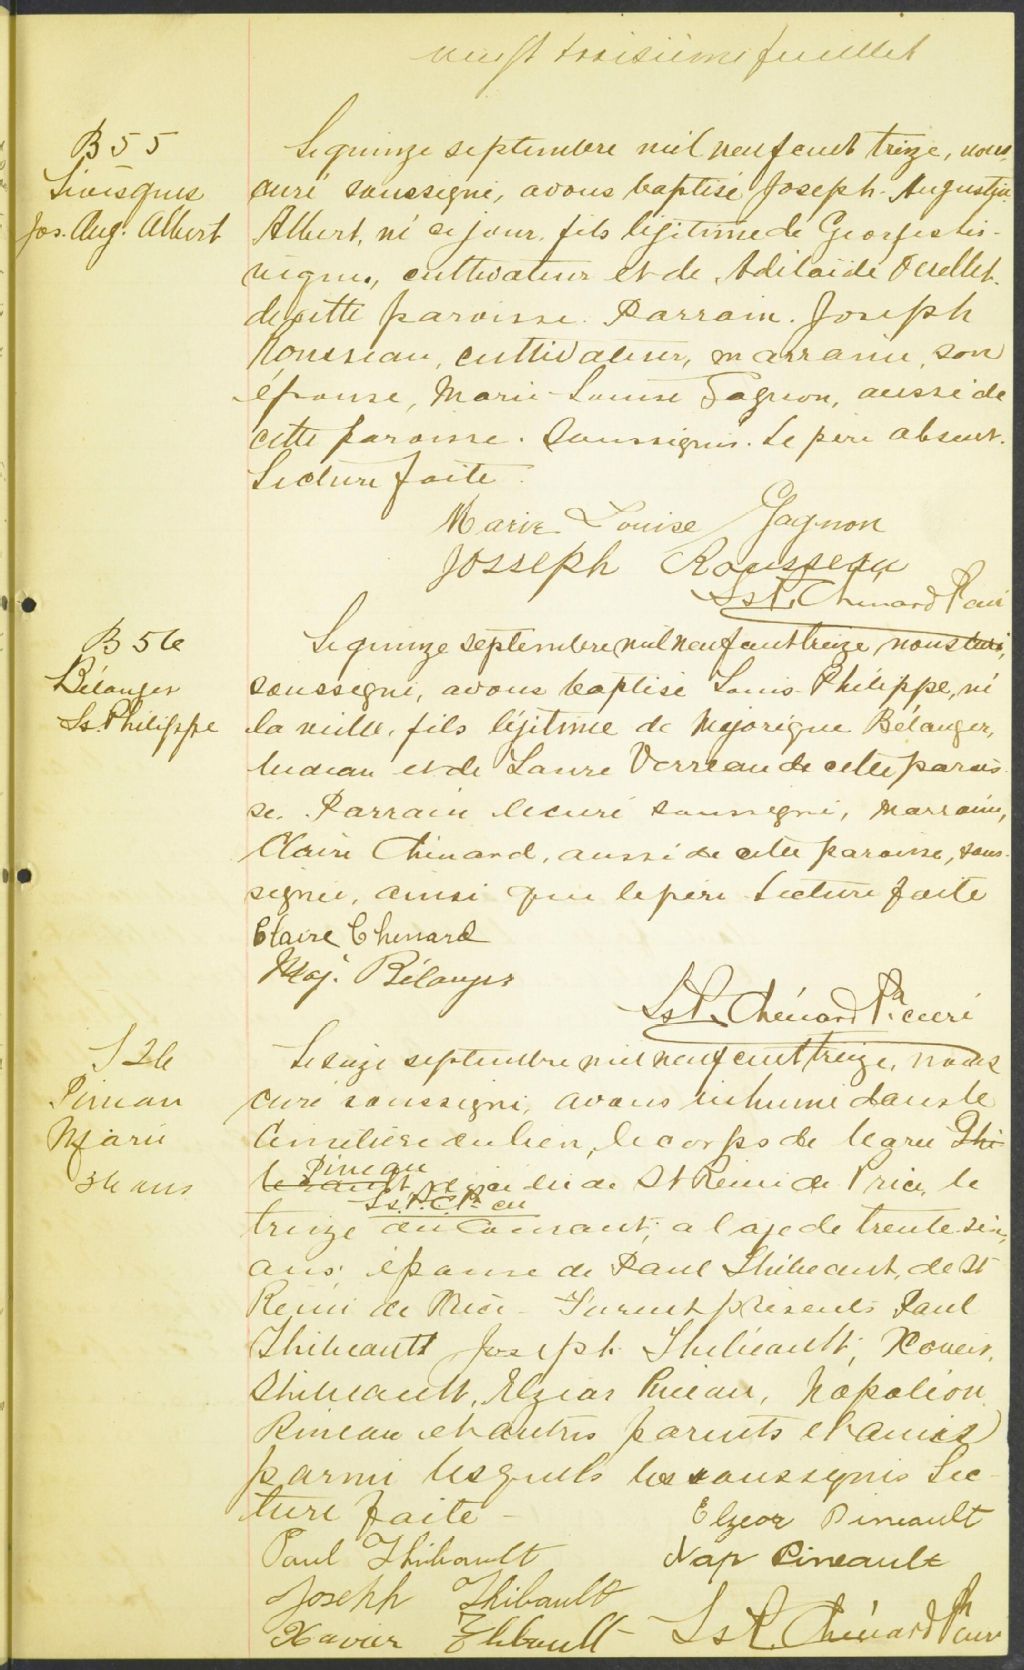 vingt troisième feuillet
B 55
Lévesques
Jos. Aug. Albert
Le quinze septembre mil neuf cent treize, nous,
curé soussigné, avons baptisé Joseph-Augustin
Albert, né ce jour, fils légitime de Georges Lé-
vêque, cultivateur et de Adélaïde Ouellet
de cette paroisse. Parrain. Joseph
Rousseau, cultivateur, marraine, son
épouse, Marie-Louise Gagnon, aussi de
cette paroisse. Soussignés. Le père absent.
Lecture faite.
Marie Louise Gagnon
Josseph Rousseau
Ls P. Chénard Ptr curé
B 56
Bélanger
Ls. Philippe
Le quinze septembre mil neuf cent treize, nous curé,
soussigné, avons baptisé Louis-Philippe, né
la veille, fils légitime de Majorique Bélanger,
bedeau et de Laure Verreau de cette parois-
se. Parrain le curé soussigné, marraine,
Claire Chénard, aussi de cette paroisse, sous-
signée, ainsi que le père Lecture faite
Claire Chenard
Maj. Bélanger
Ls P. Chénard Ptr. curé
S 26
Pineau
Marie
36 ans
Le seize septembre mil neuf cent treize, nous
curé soussigné, avons inhumé dans le
cimetière du lieu, le corps de Marie Thi-
Pineau
beault décédée de St Rémi de Price, le
Ls. P. C. Ptr cu
treize du courant, à l'age de trente six
ans, épouse de Paul Thibeault, de St
Rémi de Price - Furent présents Paul
Thibeault Joseph Thibeault, Xavier,
Thibeault, Elzéar Pineau, Napoléon
Pineau et autres parents et amis
parmi lesquels les soussignés Lec-
ture faite -
Elzear Pineault
Paul Thibault
Nap Pineault
Joseph Thibault
Xavier Thibault
Ls P. Chénard Ptr curé